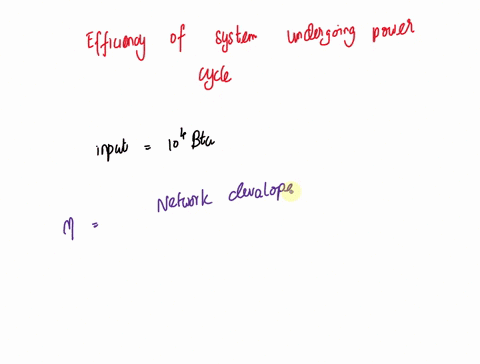 Efficiency of system undergoing power
cycle
input = 10⁴ Btu
Network develope
η =